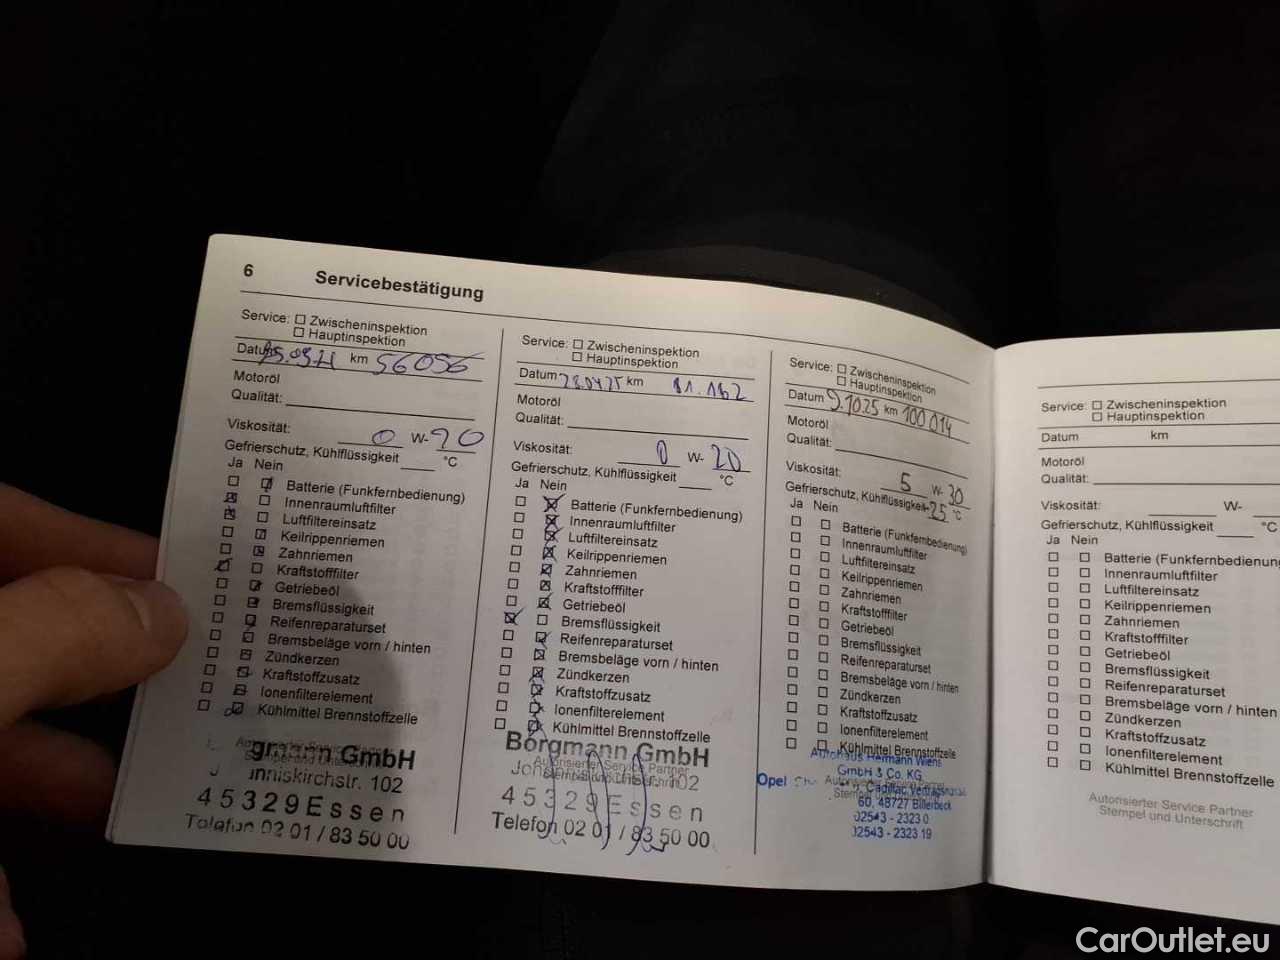 6 Servicebestätigung
Service: Zwischeninspektion
Hauptinspektion
Datum km 56056
Motoröl
Qualität:
Viskosität: 0 W-
Gefrierschutz, Kühlflüssigkeit °C
Ja Nein
Batterie (Funkfernbedienung)
Innenraumluftfilter
Luftfiltereinsatz
Keilrippenriemen
Zahnriemen
Kraftstofffilter
Getriebeöl
Bremsflüssigkeit
Reifenreparaturset
Bremsbeläge vorn / hinten
Zündkerzen
Kraftstoffzusatz
Ionenfilterelement
Kühlmittel Brennstoffzelle
Autorisierter Service Partner
Stempel und Unterschrift
gmann GmbH
nniskirchstr. 102
45329 Essen
Telefon 02 01 / 83 50 00
Service: Zwischeninspektion
Hauptinspektion
Datum km 81.162
Motoröl
Qualität:
Viskosität: 0 W- 20
Gefrierschutz, Kühlflüssigkeit °C
Ja Nein
Batterie (Funkfernbedienung)
Innenraumluftfilter
Luftfiltereinsatz
Keilrippenriemen
Zahnriemen
Kraftstofffilter
Getriebeöl
Bremsflüssigkeit
Reifenreparaturset
Bremsbeläge vorn / hinten
Zündkerzen
Kraftstoffzusatz
Ionenfilterelement
Kühlmittel Brennstoffzelle
Borgmann GmbH
Autorisierter Service Partner
Stempel und Unterschrift
102
45329 Essen
Telefon 02 01 / 83 50 00
Service: Zwischeninspektion
Hauptinspektion
Datum 9.10.25 km 100 014
Motoröl
Qualität:
Viskosität: 5 W- 30
Gefrierschutz, Kühlflüssigkeit -25 °C
Ja Nein
Batterie (Funkfernbedienung)
Innenraumluftfilter
Luftfiltereinsatz
Keilrippenriemen
Zahnriemen
Kraftstofffilter
Getriebeöl
Bremsflüssigkeit
Reifenreparaturset
Bremsbeläge vorn / hinten
Zündkerzen
Kraftstoffzusatz
Ionenfilterelement
Kühlmittel Brennstoffzelle
Autohaus Hermann Wiens
GmbH & Co. KG
Opel Cadillac Vertragshändler
Autorisierter Service Partner
60, 48727 Billerbeck
02543 - 2323 0
02543 - 2323 19
Service: Zwischeninspektion
Hauptinspektion
Datum km
Motoröl
Qualität:
Viskosität: W-
Gefrierschutz, Kühlflüssigkeit °C
Ja Nein
Batterie (Funkfernbedienung
Innenraumluftfilter
Luftfiltereinsatz
Keilrippenriemen
Zahnriemen
Kraftstofffilter
Getriebeöl
Bremsflüssigkeit
Reifenreparaturset
Bremsbeläge vorn / hinten
Zündkerzen
Kraftstoffzusatz
Ionenfilterelement
Kühlmittel Brennstoffzelle
Autorisierter Service Partner
Stempel und Unterschrift
CarOutlet.eu